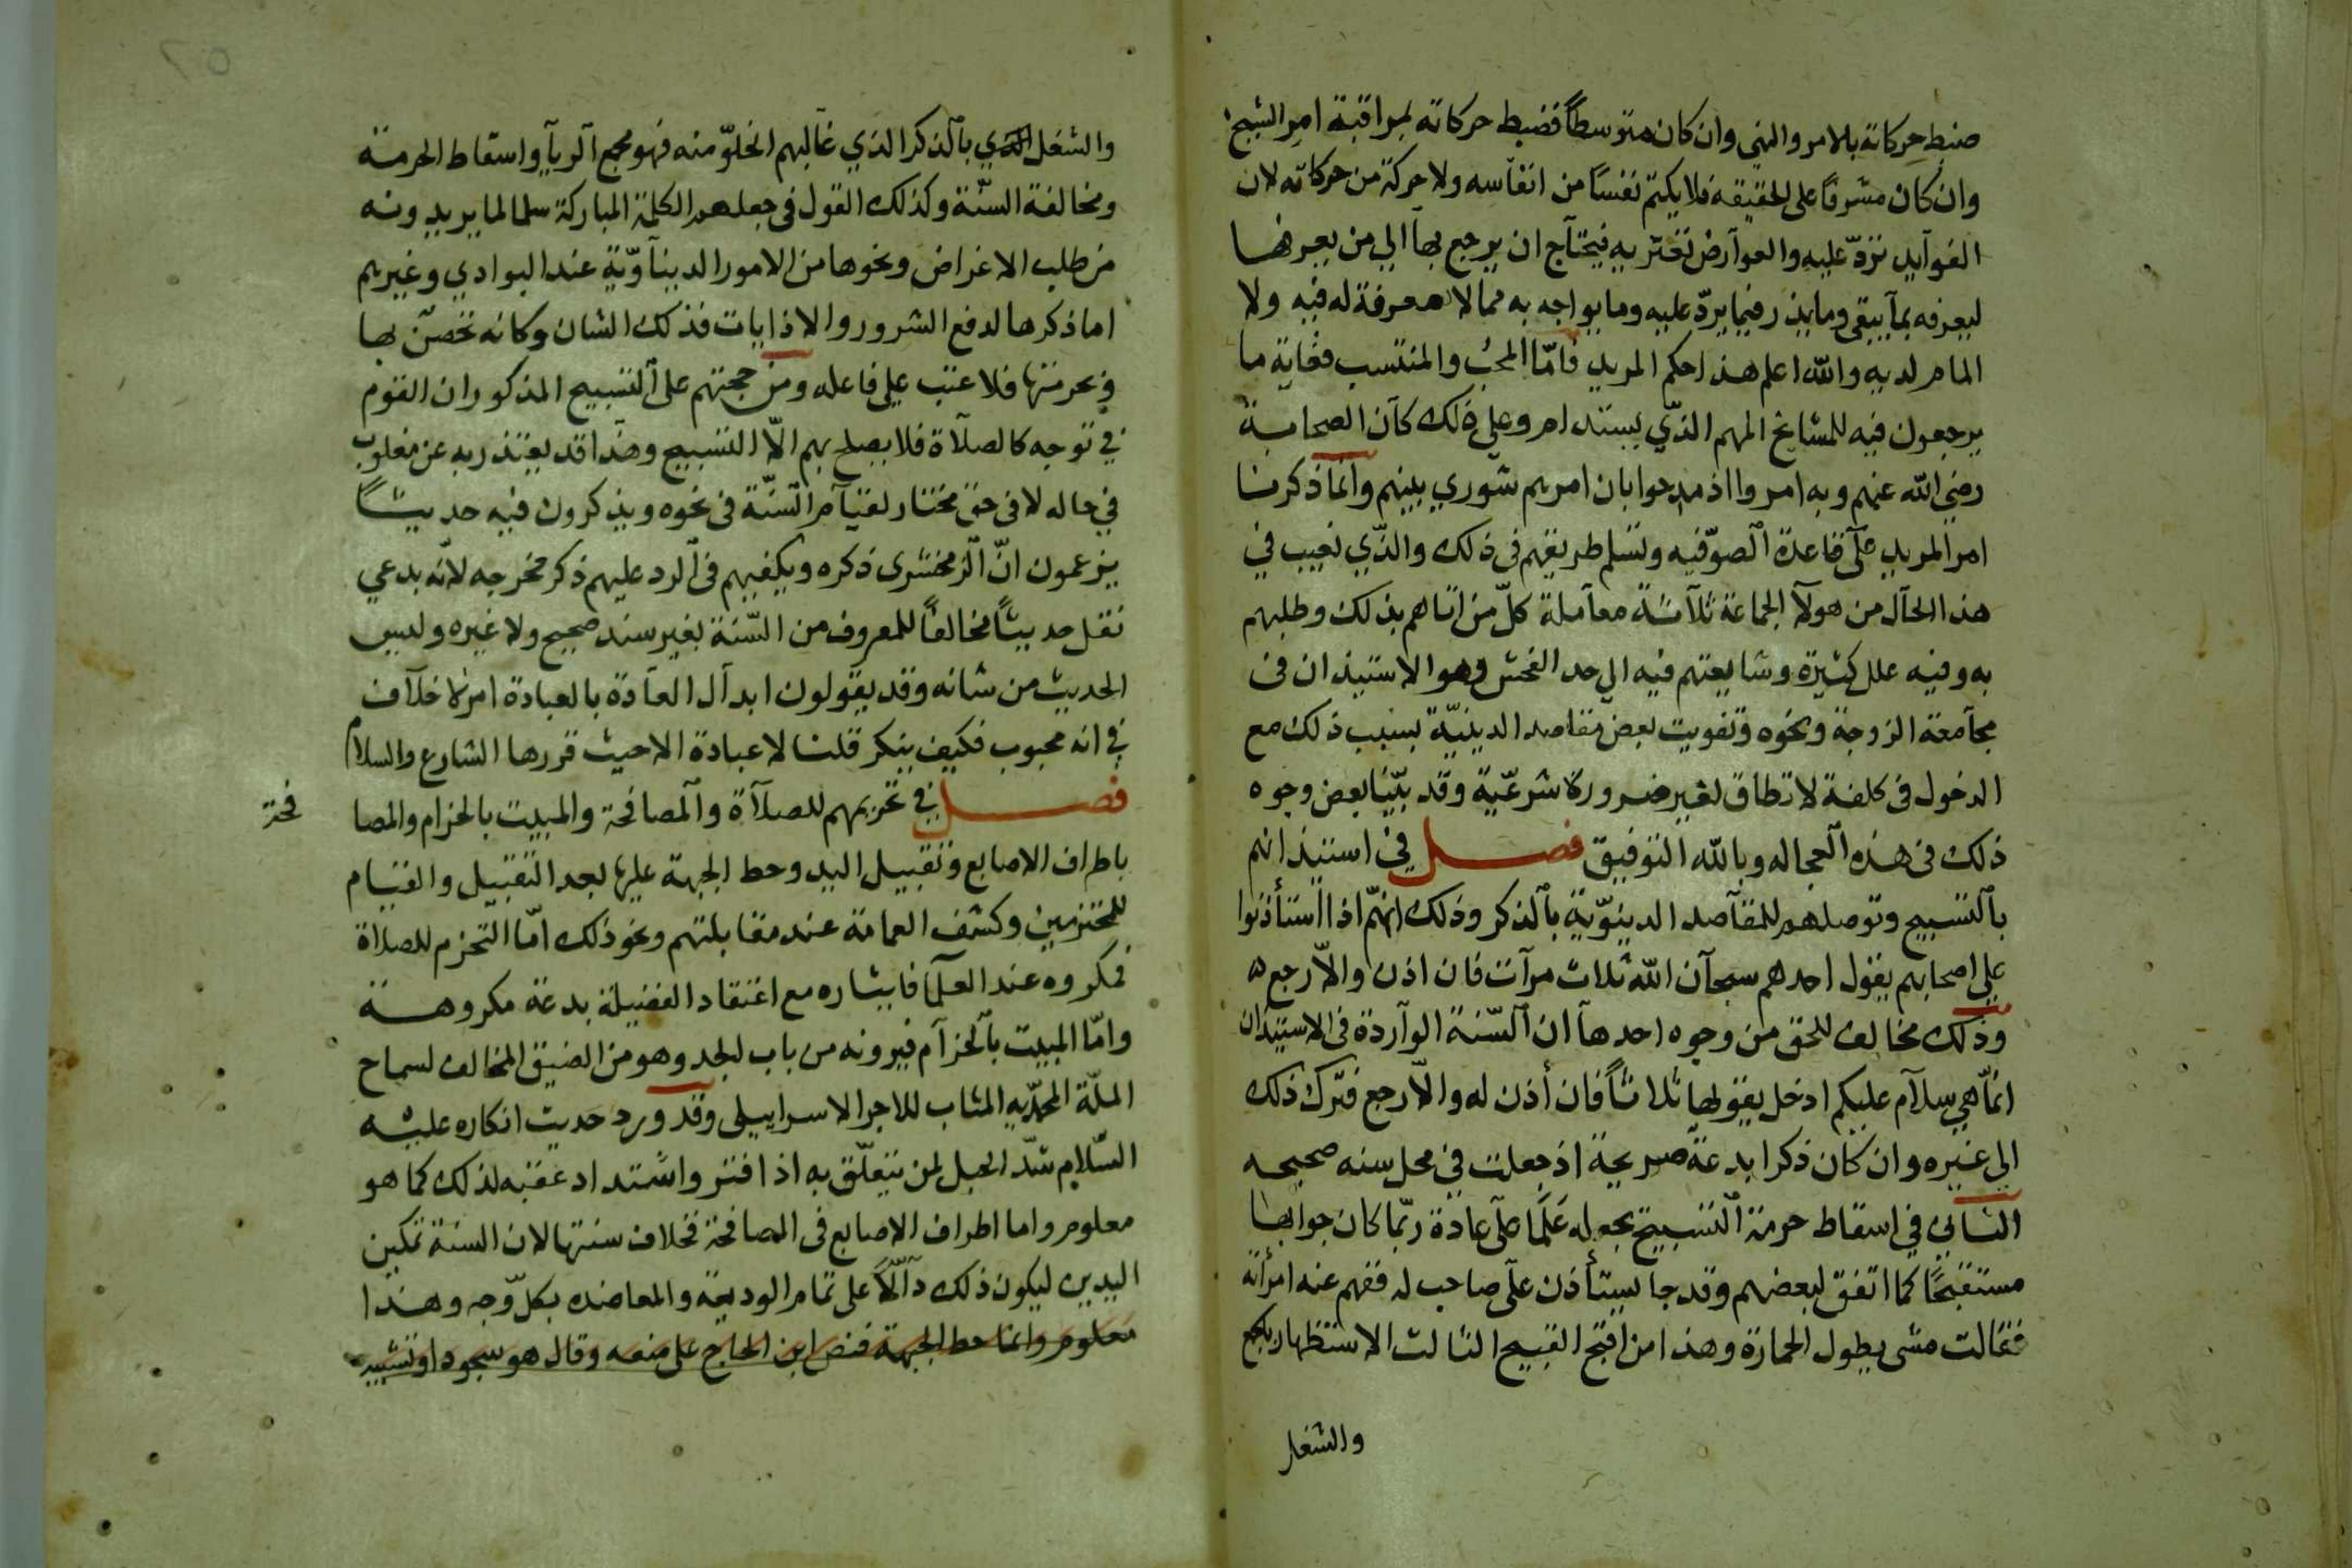 ضبط حركاته بالامر والنهي وان كان متوسطاً فضبط حركاته لمراقبة امر الشيخ
وان كان مشرفا على الحقيقه فلا يكتم نفسًا من انفاسه ولا حركة من حركاته لان
الفوآيد تردّ عليه والعوآرض تغتر به فيحتآج ان يرجع بهآ الي من يعرفها
ليعرفه بمآ يبقى وما يذر فيما يردّ عليه وما يواجه به مما لا معرفة له فيه ولا
المام لديه والله اعلم هذا حكم المريد فامّا المحب والمنتسب فغاية ما
يرجعون فيه للمشايخ المهم الذّي يستند امر وعلى ذلك كآن الصحابة
رضي الله عنهم وبه امروا اذ مدحوا بان امرهم شوري بينهم وآنما ذكرنا
امر المريد علآ قاعدة آلصوّفيه وتسلم طريقهم في ذلك والذّي نعيب في
هذا الحآل من هولآ الجماعة ثلآثة معآملة كلّ من اتاهم بذلك وطلبهم
به وفيه علل كثيرة وشايعتهم فيه الي حد الفحش وهو الاستيذان في
مجآمعة الزوجة ونحوه وتفويت بعض مقاصد الدينيّة بسبب ذلك مع
الدخول في كلفة لا تطاق لغير ضرورة شرعّية وقد بيّنا بعض وجوه
ذلك في هذه آلعجاله وبالله التوفيق فصل في استيذانهم
بآلتسبيح وتوصلهم للمقآصد الدينوّية بآلذكر وذلك انهّم اذا استأذنوا
علي اصحابهم يقول احدهم سبحآن الله ثلاث مرآت فان اذن والاّ رجع ه
وذلك مخالف للحق من وجوه احدهآ ان آلسّنة الوآردة في الاستيذان
انمّا هي سلآم عليكم ادخل يقولها ثلاثاً فان أذن له والاّ رجع فترك ذلك
الي غيره وان كان ذكرا بدعة صريحة اذ جعلت في محل سنه صحيحه
الثاني في اسقاط حرمة آلتسبيح بجعله عَلَمًا علآ عادة ربّما كان جوابها
مستقبحًا كما اتفق لبعضهم وقد جا يستأذن علآ صاحب له ففهم عنه امرأته
فقالت مشى يطول الحمارة وهذا من اقبح القبيح الثالث الاستظهار بالجمع
والشغل
والشغل بآلذكر الذي غآلبهم الخلوّ منه فهو مجمع آلريآ واسقاط الحرمة
ومخالفة السنّة وكذلك القول في جعلهم الكلمة المباركة سلما لما يريدونه
من طلب الاغراض ونحوها من الامور الدينآوّية عند البوادي وغيرهم
اما ذكرها لدفع الشرور والاذايات فذلك الشان وكانه تحصّن بها
وبحرمتها فلا عتب علي فاعله ومن حجتهم على آلتسبيح المذكور ان القوم
في توجه كالصلآة فلا يصلح بهم الاّ التسبيح وهذا قد يعتذر به عن مغلوب
في حاله لا في حق مختار لقيآم السّنّة في نحوه ويذكرون فيه حديثًا
يزعمون انّ آلزمخشرى ذكره ويكفيهم في آلرد عليهم ذكر مخرجه لانّه يدعي
نقل حديثًا مخالفًا للمعروف من السّنة بغير سند صحيح ولا غيره وليس
الحديث من شانه وقد يقولون ابدآل العآدة بالعبادة امر لا خلآف
في انه محبوب فكيف ينكر قلنا لا عبادة الا حيث قررها الشارع والسلام
فصل في تحزيمهم للصلآآة وآلمصافحة والمبيت بالحزام والمصافحة
باطراف الاصابع وتقبيل اليد وحط الجبهة عليها بعد التقبيل والقيام
للمحتزمين وكشف العمامة عند مقابلتهم ونحو ذلك امّا التحزم للصلاة
فمكروه عند العلمآ فايثاره مع اعتقاد الفضيلة بدعة مكروهة
وامّا المبيت بآلحزآم فيرونه من باب الجد وهو من الضيق المخالف لسماح
الملّة المحمدّيه المثاب للاجر الاسراييلى وقد ورد حديث انكاره عليه
السّلام شدّ الحبل لمن يتعلّق به اذا فتر واشتداد غضبه لذلك كما هو
معلوم واما اطراف الاصابع في المصافحة فخلاف سنتها لان السنة تمكين
اليدين ليكون ذلك دآلّاً على تمام الوديعة والمعاضده بكلّ وجه وهذا
معلوم وانما حط الجبهة فنص ابن الحاج على منعه وقال هو سجود او تشبيه